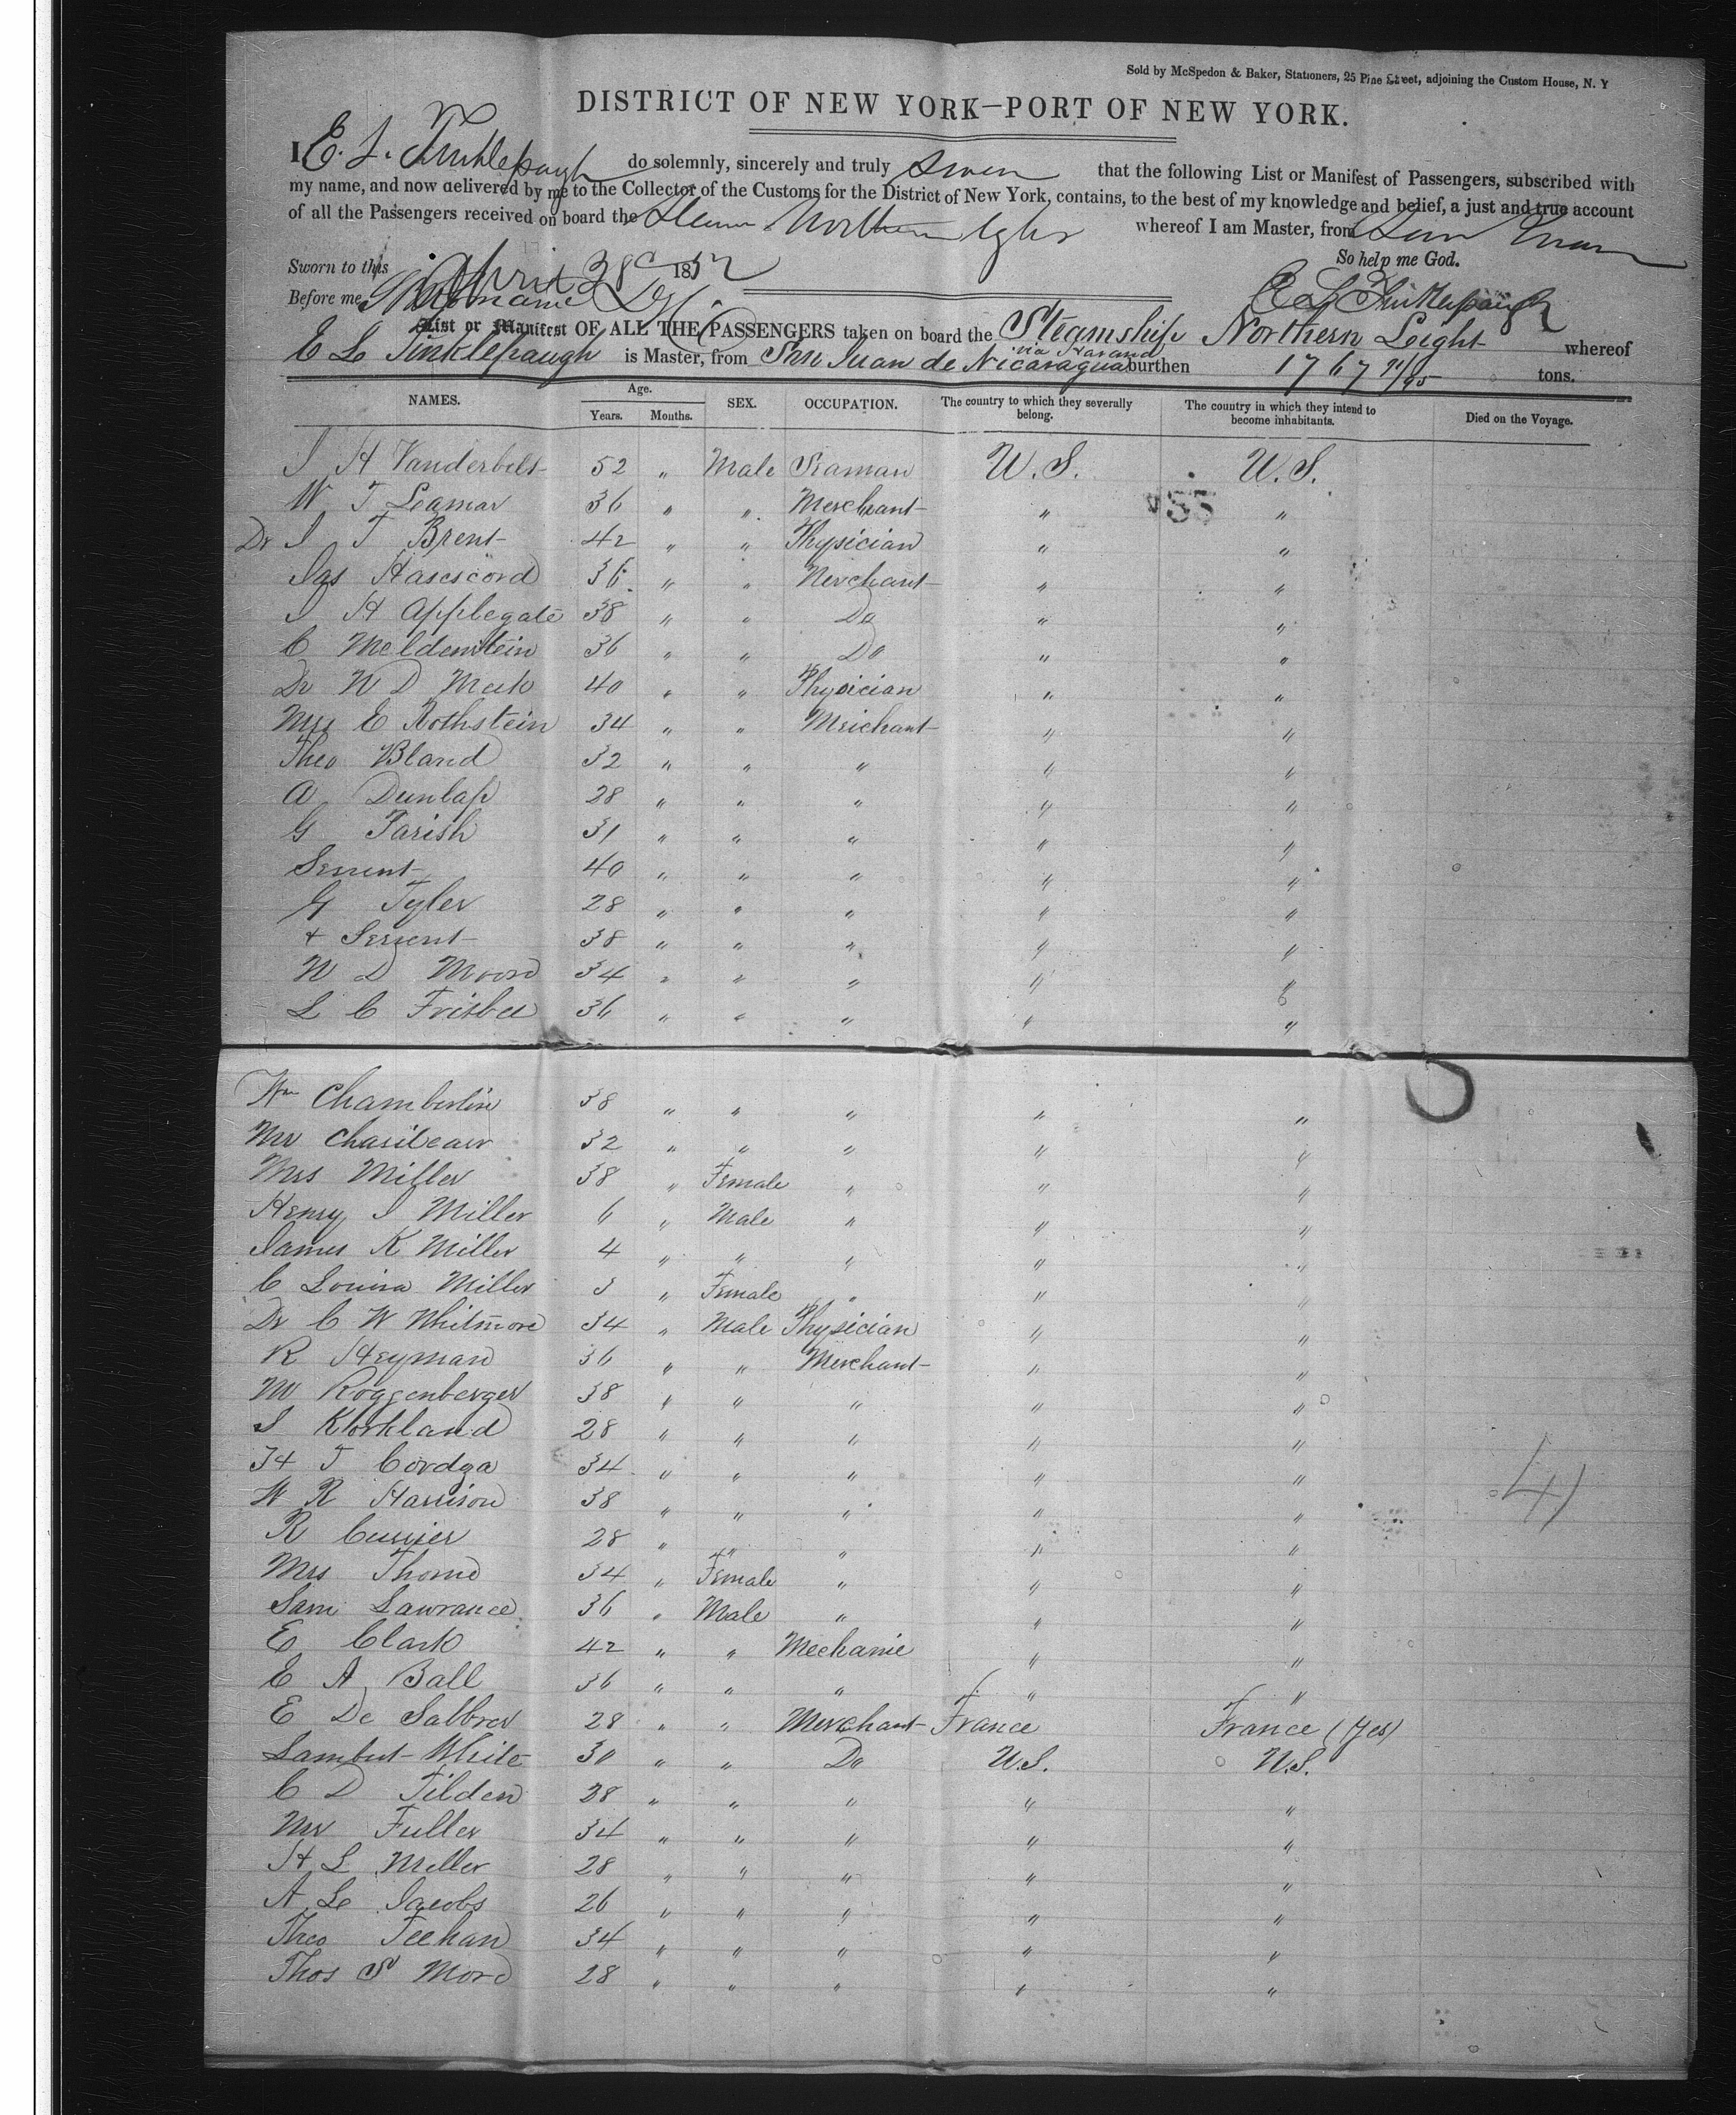 Sold by McSpedon & Baker, Stationers, 25 Pine Street, adjoining the Custom House, N. Y
DISTRICT OF NEW YORK—PORT OF NEW YORK.
I, E. L. Tinklepaugh do solemnly, sincerely and truly swear that the following List or Manifest of Passengers, subscribed with
my name, and now delivered by me to the Collector of the Customs for the District of New York, contains, to the best of my knowledge and belief, a just and true account
of all the Passengers received on board the Steamer Northern Light whereof I am Master, from San Juan
So help me God.
Sworn to this April 28 1852
Before me E L Tinklepaugh
List or Manifest OF ALL THE PASSENGERS taken on board the Steamship Northern Light whereof
E L Tinklepaugh is Master, from San Juan de Nicaragua via Havana burthen 1767 91/95 tons.
NAMES. Age. Years. Months. SEX. OCCUPATION. The country to which they severally belong. The country in which they intend to become inhabitants. Died on the Voyage.
J H Vanderbilt 52 " Male Seaman U.S. U.S.
W T Leamar 36 " " Merchant " "
Dr J T Brent 42 " " Physician " "
Jas Hasescord 36 " " Merchant " "
J H Applegate 38 " " Do " "
C Meldenstein 36 " " Do " "
Dr W D Meek 40 " " Physician " "
Mrs E Rothstein 34 " " Merchant " "
Theo Bland 32 " " " " "
A Dunlap 28 " " " " "
G Parish 31 " " " " "
Servent 40 " " " " "
G Tyler 28 " " " " "
+ Servent 38 " " " " "
W D Moore 34 " " " " "
L C Frisbee 36 " " " " "
Wm Chamberline 38 " " " " "
Mr 32 " " " " "
Mrs Miller 38 " Female " " "
Henry J Miller 6 " Male " " "
James K Miller 4 " " " " "
C Louisa Miller 3 " Female " " "
Dr C W Whitmore 34 " Male Physician " "
R Heyman 36 " " Merchant " "
M Roggenberger 38 " " " " "
J Kirkland 28 " " " " "
H T Cordza 34 " " " " "
W R Harrison 38 " " " " "
R Currier 28 " " " " "
Mrs Thorne 34 " Female " " "
Sam Lawrance 36 " Male " " "
E Clark 42 " " Mechanic " "
E A Ball 36 " " " " "
E De Sabbrer 28 " " Merchant France France (Yes)
Lambert White 30 " " Do U.S. U.S.
C D Tilden 28 " " " " "
Mr Fuller 34 " " " " "
H L Miller 28 " " " " "
A L Jacobs 26 " " " " "
Theo Feehan 34 " " " " "
Thos S Mord 28 " " " " "
41